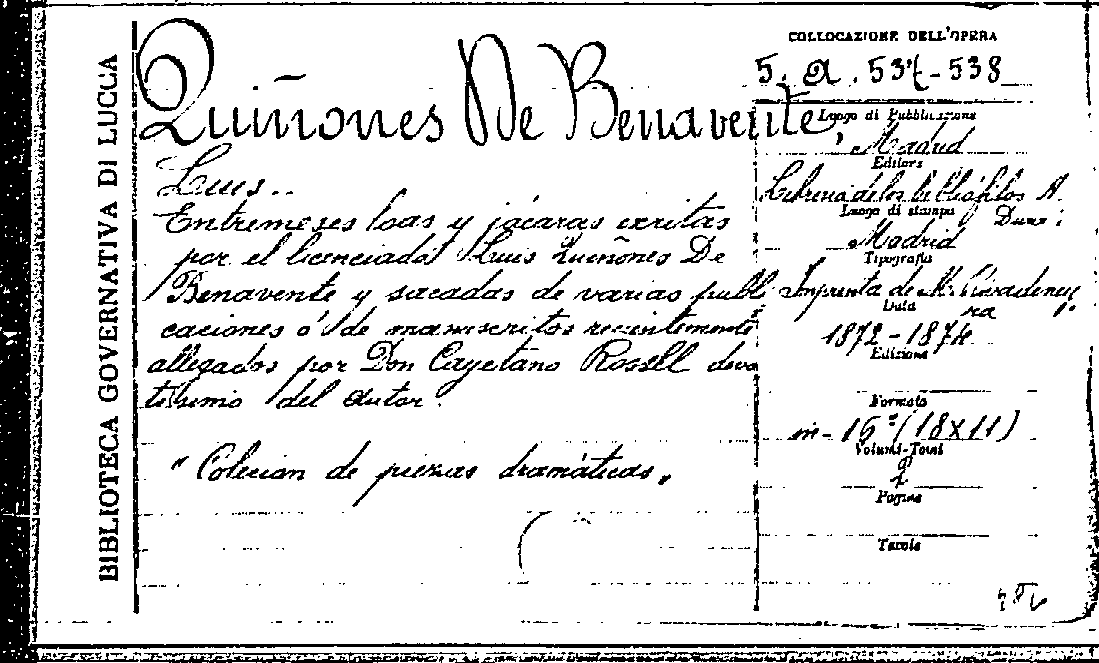 BIBLIOTECA GOVERNATIVA DI LUCCA
Quiñones De Benavente
Luis..
Entremeses loas y jácaras escritas
por el licenciado Luis Quiñones De
Benavente y sacadas de varias publi
caciones ó de manuscritos recientemente
allegados por Don Cayetano Rosell devo
tísimo del autor.
"Colecion de piezas dramáticas"
COLLOCAZIONE DELL'OPERA
5. a. 537-538
Luogo di Pubblicazione
Madrid
Editore
Libreria de los bibliófilos A.
Luogo di stampa
Duran
Madrid
Tipografia
Imprenta de M. Rivadeney
ra
Data
1872-1874
Edizione
Formato
in-16° (18x11)
Volumi-Tomi
2
Pagine
Tavole